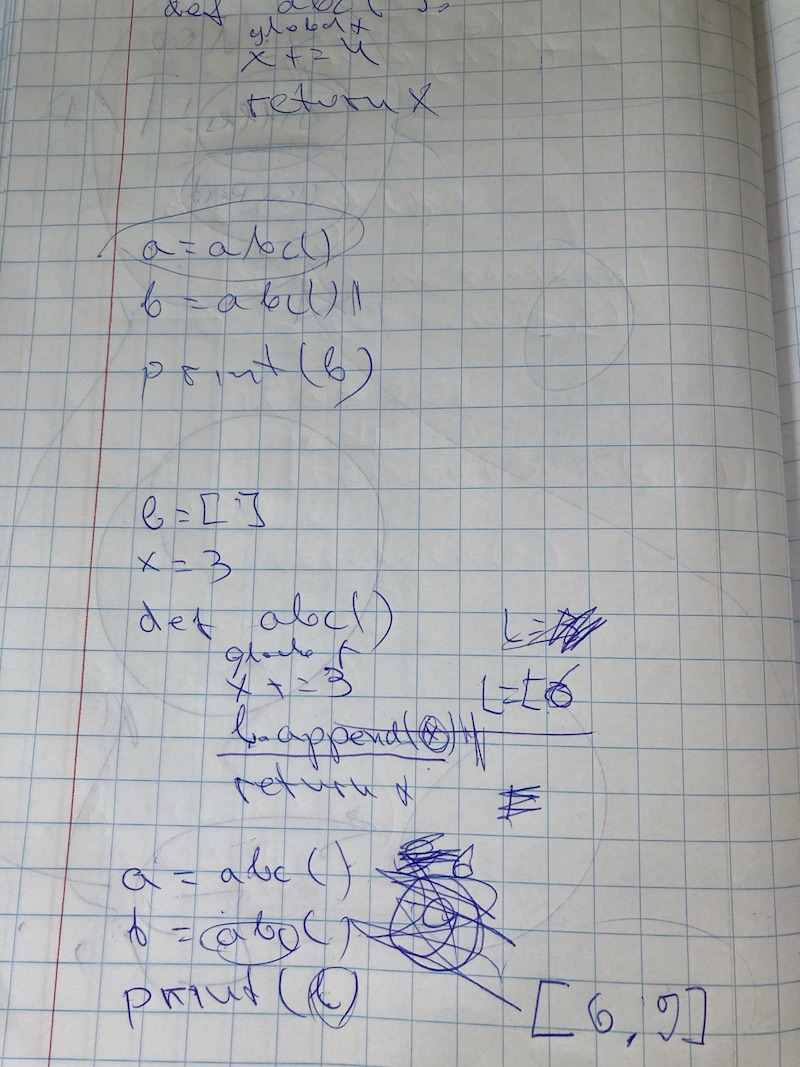 def abc():
global x
x += 4
return x
a = abc()
b = abc()
print(b)
l = [ ]
x = 3
def abc()
global x
x += 3
l.append(x)
return x
L =
L = [6
a = abc()
6
b = abc()
print(l)
[6, 9]